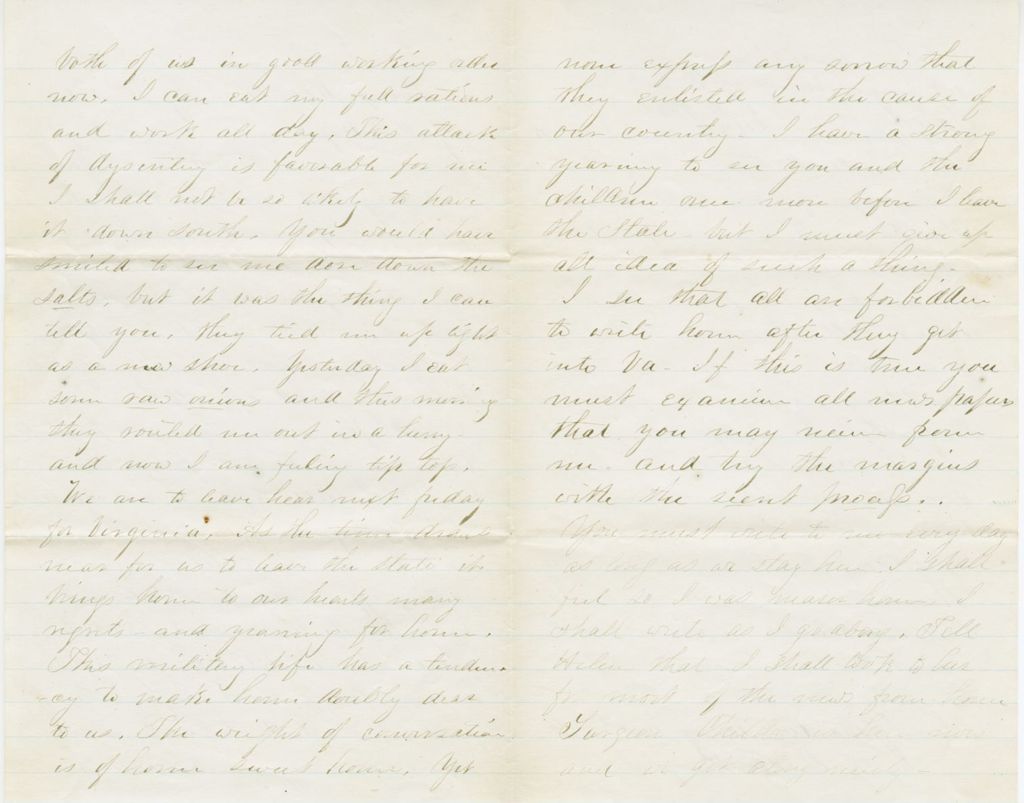 both of us in good working order
now. I can eat my full rations
and work all day. This attack
of dysentery is favorable for me
I shall not be so likely to have
it down South. You would have
smiled to see me down the
salts, but it was the thing I can
tell you. they tied me up tight
as a new shoe. Yesterday I eat
some raw onions and this morning
they routed me out in a hurry
and now I am feeling tip top.
We are to leave hear next friday
for Virginia. As the time draws
near for us to leave the State it
brings home to our hearts many
regrets and yearning for home.
This military life has a tenden-
-cy to make home doubly dear
to us. The weight of conversation
is of home sweet home. Yet
none express any sorrow that
they enlisted in the cause of
our country. I have a strong
yearning to see you and the
children once more before I leave
the State but I must give up
all idea of such a thing.
I see that all are forbidden
to write home after they get
into Va. If this is true you
must examine all news papers
that you may receive from
me. and try the margins
with the secret process..
You must write to me every day
as long as we stay here. I shall
feel so I was nearer home. I
shall write as I go along. Tell
Helen that I shall look to her
for most of the news from home
Surgeon is here now
and we get along nicely-